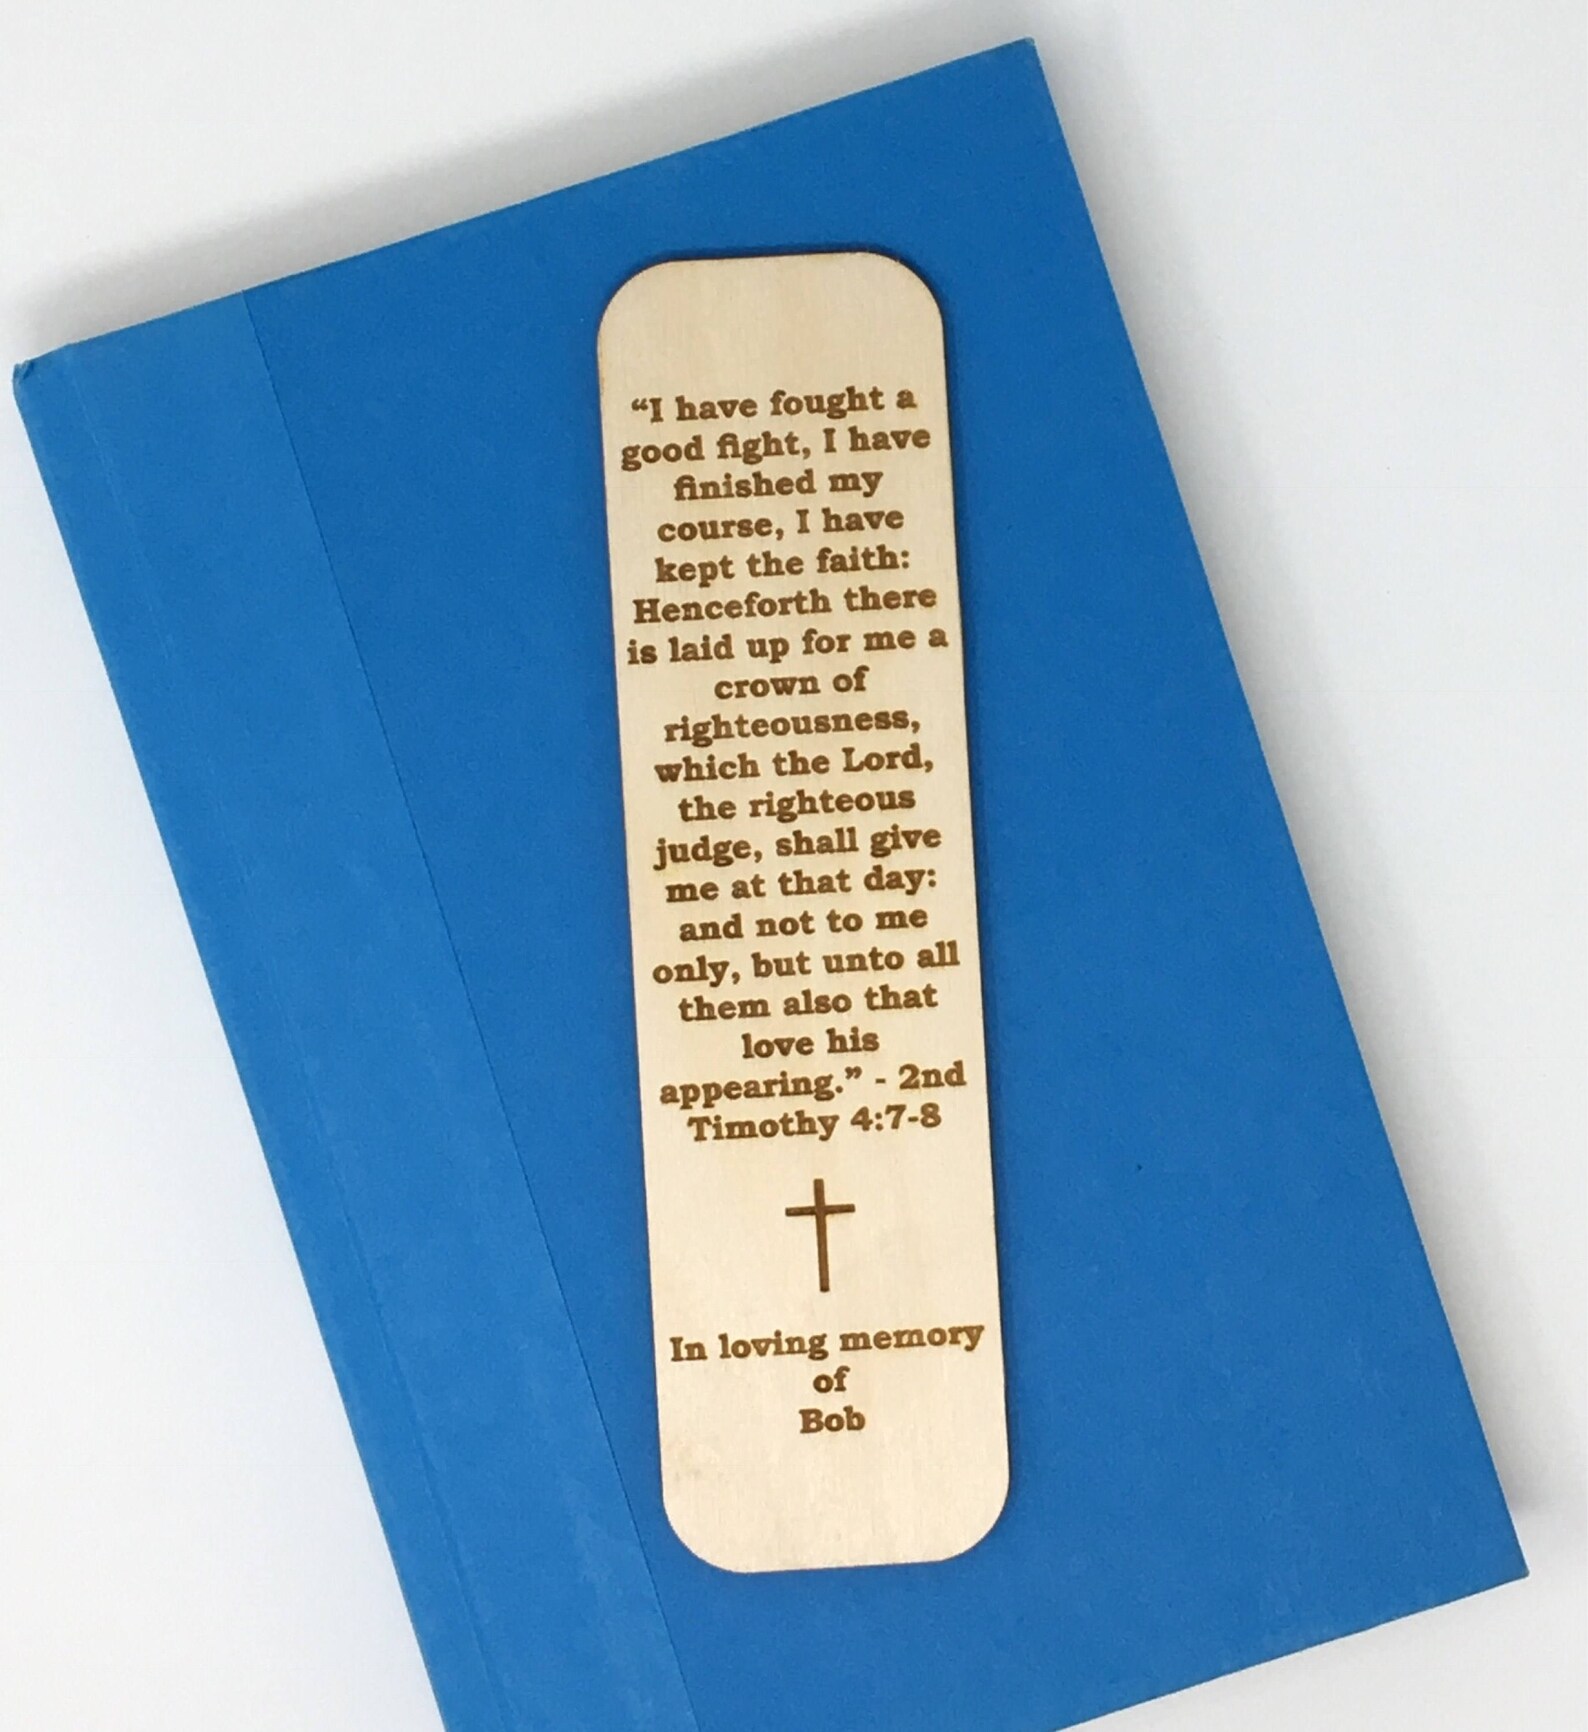 “I have fought a
good fight, I have
finished my
course, I have
kept the faith:
Henceforth there
is laid up for me a
crown of
righteousness,
which the Lord,
the righteous
judge, shall give
me at that day:
and not to me
only, but unto all
them also that
love his
appearing.” - 2nd
Timothy 4:7-8
In loving memory
of
Bob